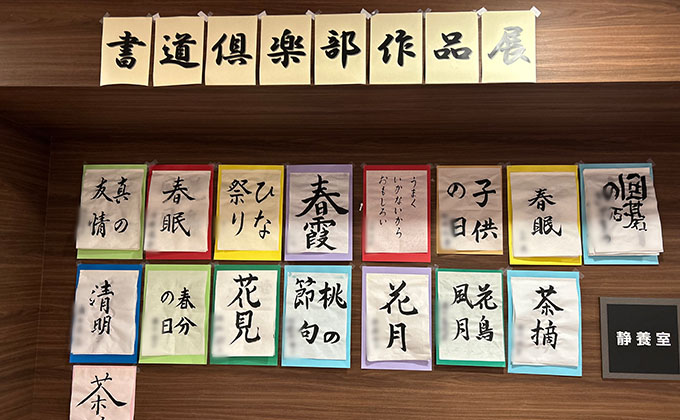 書道倶楽部作品展
真の
友情
春眠
ひな
祭り
春霞
うまく
いかないから
おもしろい
子供
の日
春眠
囲碁
清明
春分
の日
花見
桃の
節句
花月
花鳥
風月
茶摘
静養室
茶